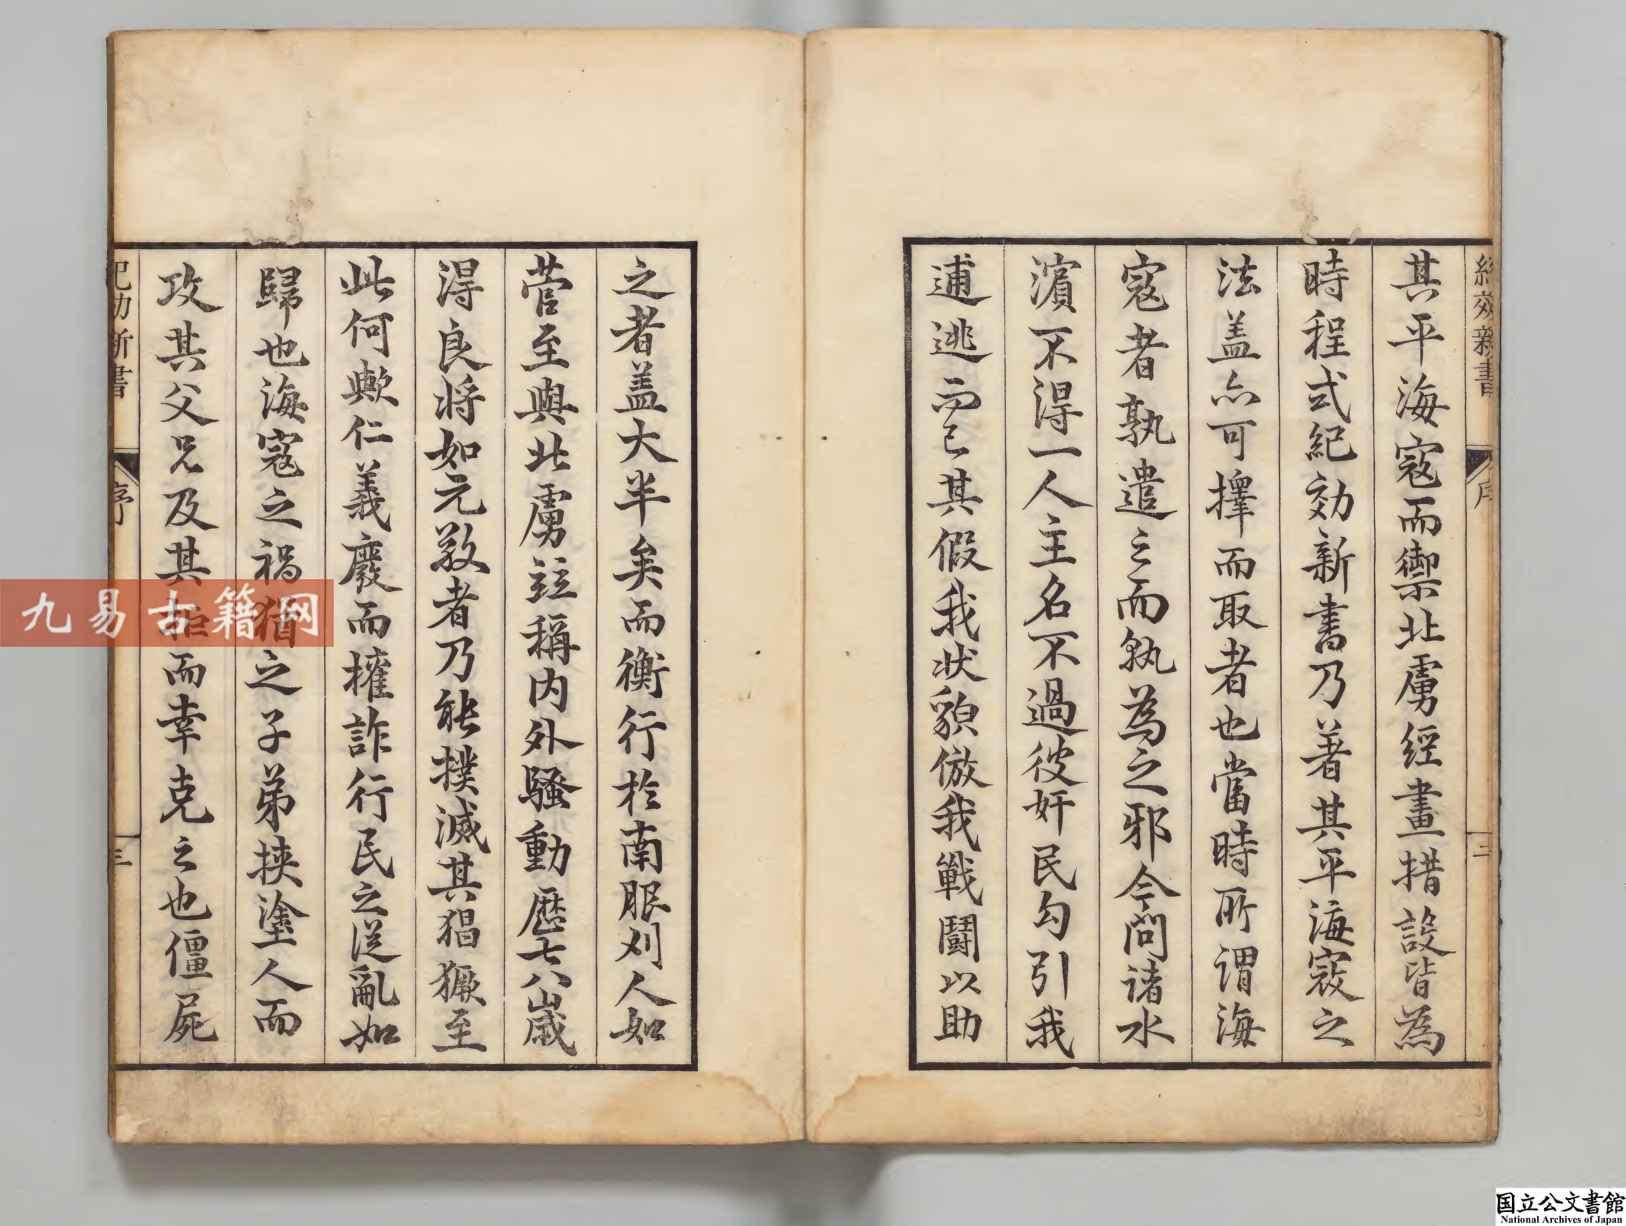 紀效新書
序
二
其平海寇而禦北虜經畫措設皆為
時程式紀効新書乃著其平海寇之
法盖亦可擇而取者也當時所謂海
寇者孰遣之而孰為之邪今問諸水
濱不得一人主名不過彼奸民勾引我
逋逃而已其假我状貌倣我戰鬪以助
之者盖大半矣而衡行於南服刈人如
菅至與北虜竝稱内外騷動歷七八歲
得良将如元敬者乃能撲滅其猖獗至
此何歟仁義廢而權詐行民之従亂如
歸也海寇之禍猶之子弟挾塗人而
攻其父兄及其而幸克之也僵屍
紀効新書
序
三
九易古籍网
国立公文書館
National Archives of Japan